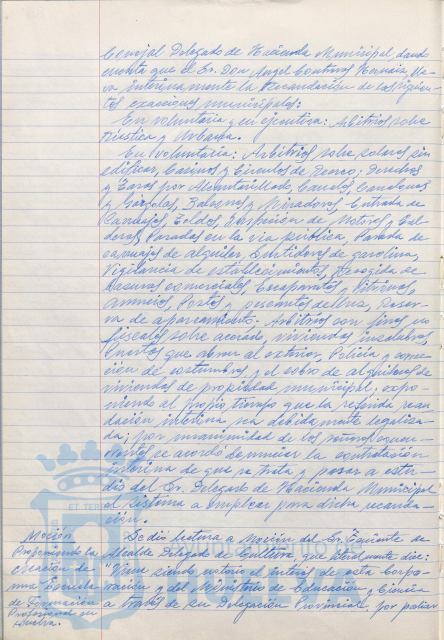 Concejal Delegado de Hacienda Municipal, dando
cuenta que el Sr. Don Angel Contreras, lle-
va interinamente la Recaudación de los siguien-
tes exacciones municipales:
En voluntaria y en ejecutiva: Arbitrios sobre
Rústica y Urbana.
En voluntaria: Arbitrios sobre solares sin
edificar, Casinos y Círculos de Recreo; Derechos
y Tasas por Alcantarillado, Canales, Canalones
y Gárgolas, Balcones y Miradores, Entrada de
Carruajes, Toldos, Inspección de Motores y Cal-
deras, Paradas en la vía pública, Parada de
carruajes de alquiler, Surtidores de gasolina,
Vigilancia de establecimientos, Recogida de
Basuras comerciales, Escaparates y Vitrinas,
Anuncios, Postes y de luz, Reser-
va de aparcamiento. Arbitrios con fines no
fiscales sobre acerado, viviendas insalubres,
Puertas que abren al exterior, Policía y correc-
ción de costumbres y el cobro de alquileres de
viviendas de propiedad municipal; expo-
niendo al propio tiempo que la referida recau-
dación interina sea debidamente legaliza-
da; por unanimidad de los señores concu-
rrentes se acordó denunciar la contratación
interina de que se trata y pasar a estu-
dio del Sr. Delegado de Hacienda Municipal
el sistema a emplear para dicha recauda-
ción.
Moción
Proponiendo la
creación de
una Escuela
de Formación
Profesional en
Huelva.
Se dió lectura a Moción del Sr. Teniente de
Alcalde Delegado de Cultura, que literalmente dice:
"Viene siendo notorio el interés de esta Corpo-
ración y del Ministerio de Educación y Ciencia
a través de su Delegación Provincial, por paliar
ET TERRAE
HUELVA